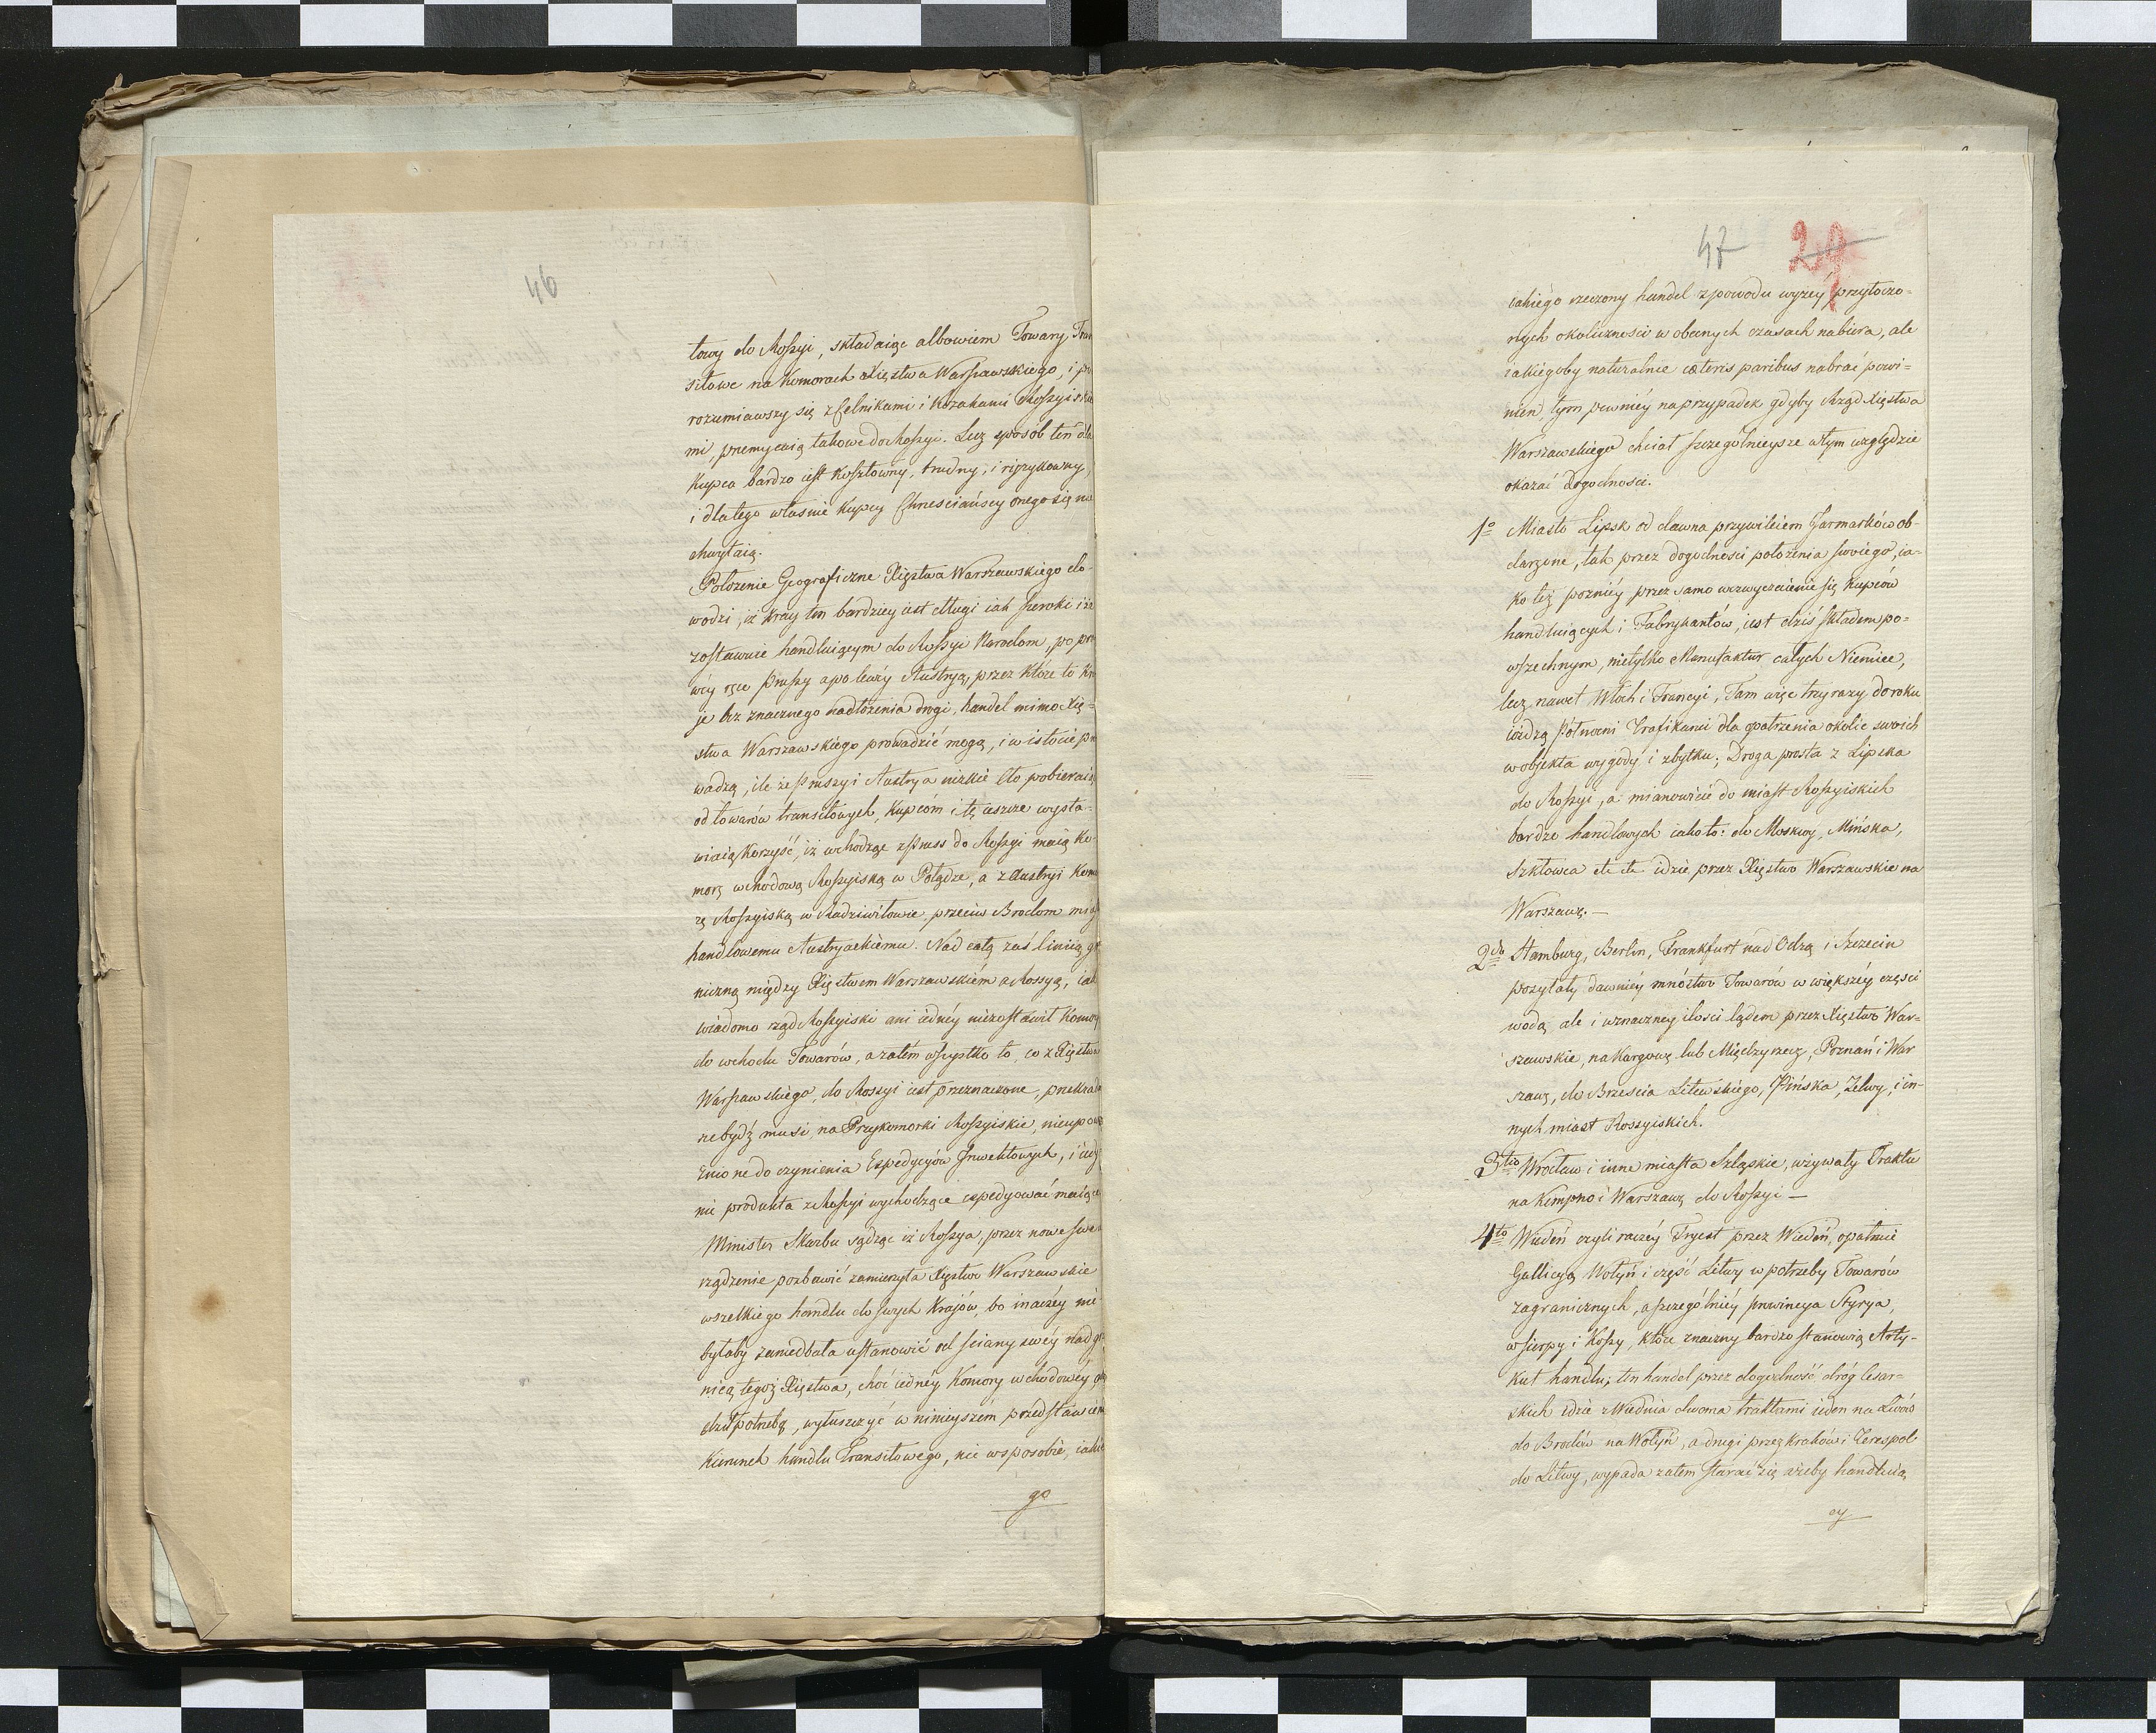 46
towy do Rossyi, składaiąc albowiem Towary Tran
sitowe na Komorach Xięstwa Warszawskiego, i po
rozumiawszy się z Celnikami i Kozakami Rossyiski
mi, przemycaią takowe do Rossyi. Lecz sposób ten dla
Kupca bardzo iest kosztowny, trudny, i ryzykowny,
i dlatego własnie Kupcy Chrzesciańscy onego się nie
chwytaią.
Położenie Geograficzne Xięstwa Warszawskiego do-
wodzi, iż Kray ten bardziey iest długi iak szeroki i że
zostawuie handluiącym do Rossyi Narodom, po pra
wéy ręce Prussy a po lewéy Austryą, przez które to Kra
je bez znacznego nadłożenia drogi, handel mimo Xię-
stwa Warszawskiego prowadzić mogą, i w istocie pro
wadzą, ile że Prussy i Austrya nizkie Cło pobieraią
od towarów transitowych, Kupcóm i tę ieszcze wysta-
wiaią Korzyść, iż wchodząc z Pruss do Rossyi maią Ko-
morę wchodową Rossyiską w Połądze, a z Austryi Komo
rę Rossyiską w Radziwiłowie, przeciw Brodom mias
handlowemu Austryackiému. Nad całą zaś linią gra
niczną między Xięstwem Warszawskiém a Rossyą, iak
wiadomo rząd Rossyiski ani iednéy niezostawił Komory
do wchodu Towarów, a zatém wszystko to, co z Xięstwa
Warszawskiego, do Rossyi iest przeznaczone, przekrada
ne bydź musi, na Przykomorki Rossyiskie, nieupowa
żnione do czynienia Expedycyów Inwektowych, i iedy
nie produkta z Rossyi wychodzące expedyować maiące
Minister Skarbu sądząc iż Rossya, przez nowe swe u
rządzenie pozbawić zamierzyła Xięstwo Warszawskie
wszelkiego handlu do swych Krajów, bo inaczéy nie
byłaby zaniedbała ustanowić od sciany swéy nad gra
nicą tegoż Xięstwa, choć iednéy Komory wchodowéy,
dził potrzebę, wyłuszczyć w ninieyszém przedstawieni
Kierunek handlu Transitowego, nie w sposobie, iakie
go
47 29
iakiégo rzeczony handel z powodu wyżéy przytoczo-
nych okoliczności w obecnych czasach nabiera, ale
iakiégoby naturalnie cæteris paribus nabrać powi-
nien, tym pewniéy na przypadek gdyby Rząd Xięstwa
Warszawskiego chciał szczególnieysze w tym względzie
okazać dogodności.
1o Miasto Lipsk od dawna przywileiem Jarmarków ob-
darzone, tak przez dogodności położenia swoiego, ia-
ko też poźniéy przez samo wzwyczaienie się Kupców
handluiących i Fabrykantów, iest dziś składem po-
wszechnym, nietylko Manufaktur całych Niemiec,
lecz nawet Włoch i Francyi, Tam więc trzy razy do roku
iéżdżą Północni Trafikanci dla opatrzenia okolic swoich
w objekta wygody i zbytku; Droga prosta z Lipska
do Rossyi, a mianowicie do miast Rossyiskich
bardzo handlowych iakoto: do Moskwy, Mińska,
Szkłowca etc etc idzie przez Xięstwo Warszawskie na
Warszawę. —
2do Hamburg, Berlin, Frankfurt nad Odrą i Szczecin
posyłały dawniéy mnóstwo Towarów w większéy części
wodą, ale i wznaczney ilosci lądem przez Xięstwo War-
szawskie, na Kargowę lub Międzyrzecz, Poznań i War
szawę, do Brzescia Litewskiégo, Pińska, Zelwy, i in-
nych miast Rossyiskich.
3tio Wrocław i inne miasta Szląskie, używały Traktu
na Kempno i Warszawę do Rossyi —
4to Wiedeń czyli raczéy Tryest przez Wiedeń, opatruie
Gallicyą Wołyń i część Litwy w potrzeby Towarów
zagranicznych, a szczególniéy prowincya Styrya,
w sierpy i Kossy, które znaczny bardzo stanowią Arty-
kuł handlu; ten handel przez dogodność dróg Cesar-
skich idzie z Wiednia dwoma traktami ieden na Lwów
do Brodów na Wołyń, a drugi przez Kraków i Terespol
do Litwy, wypada zatem starać się ażeby handluią
cy